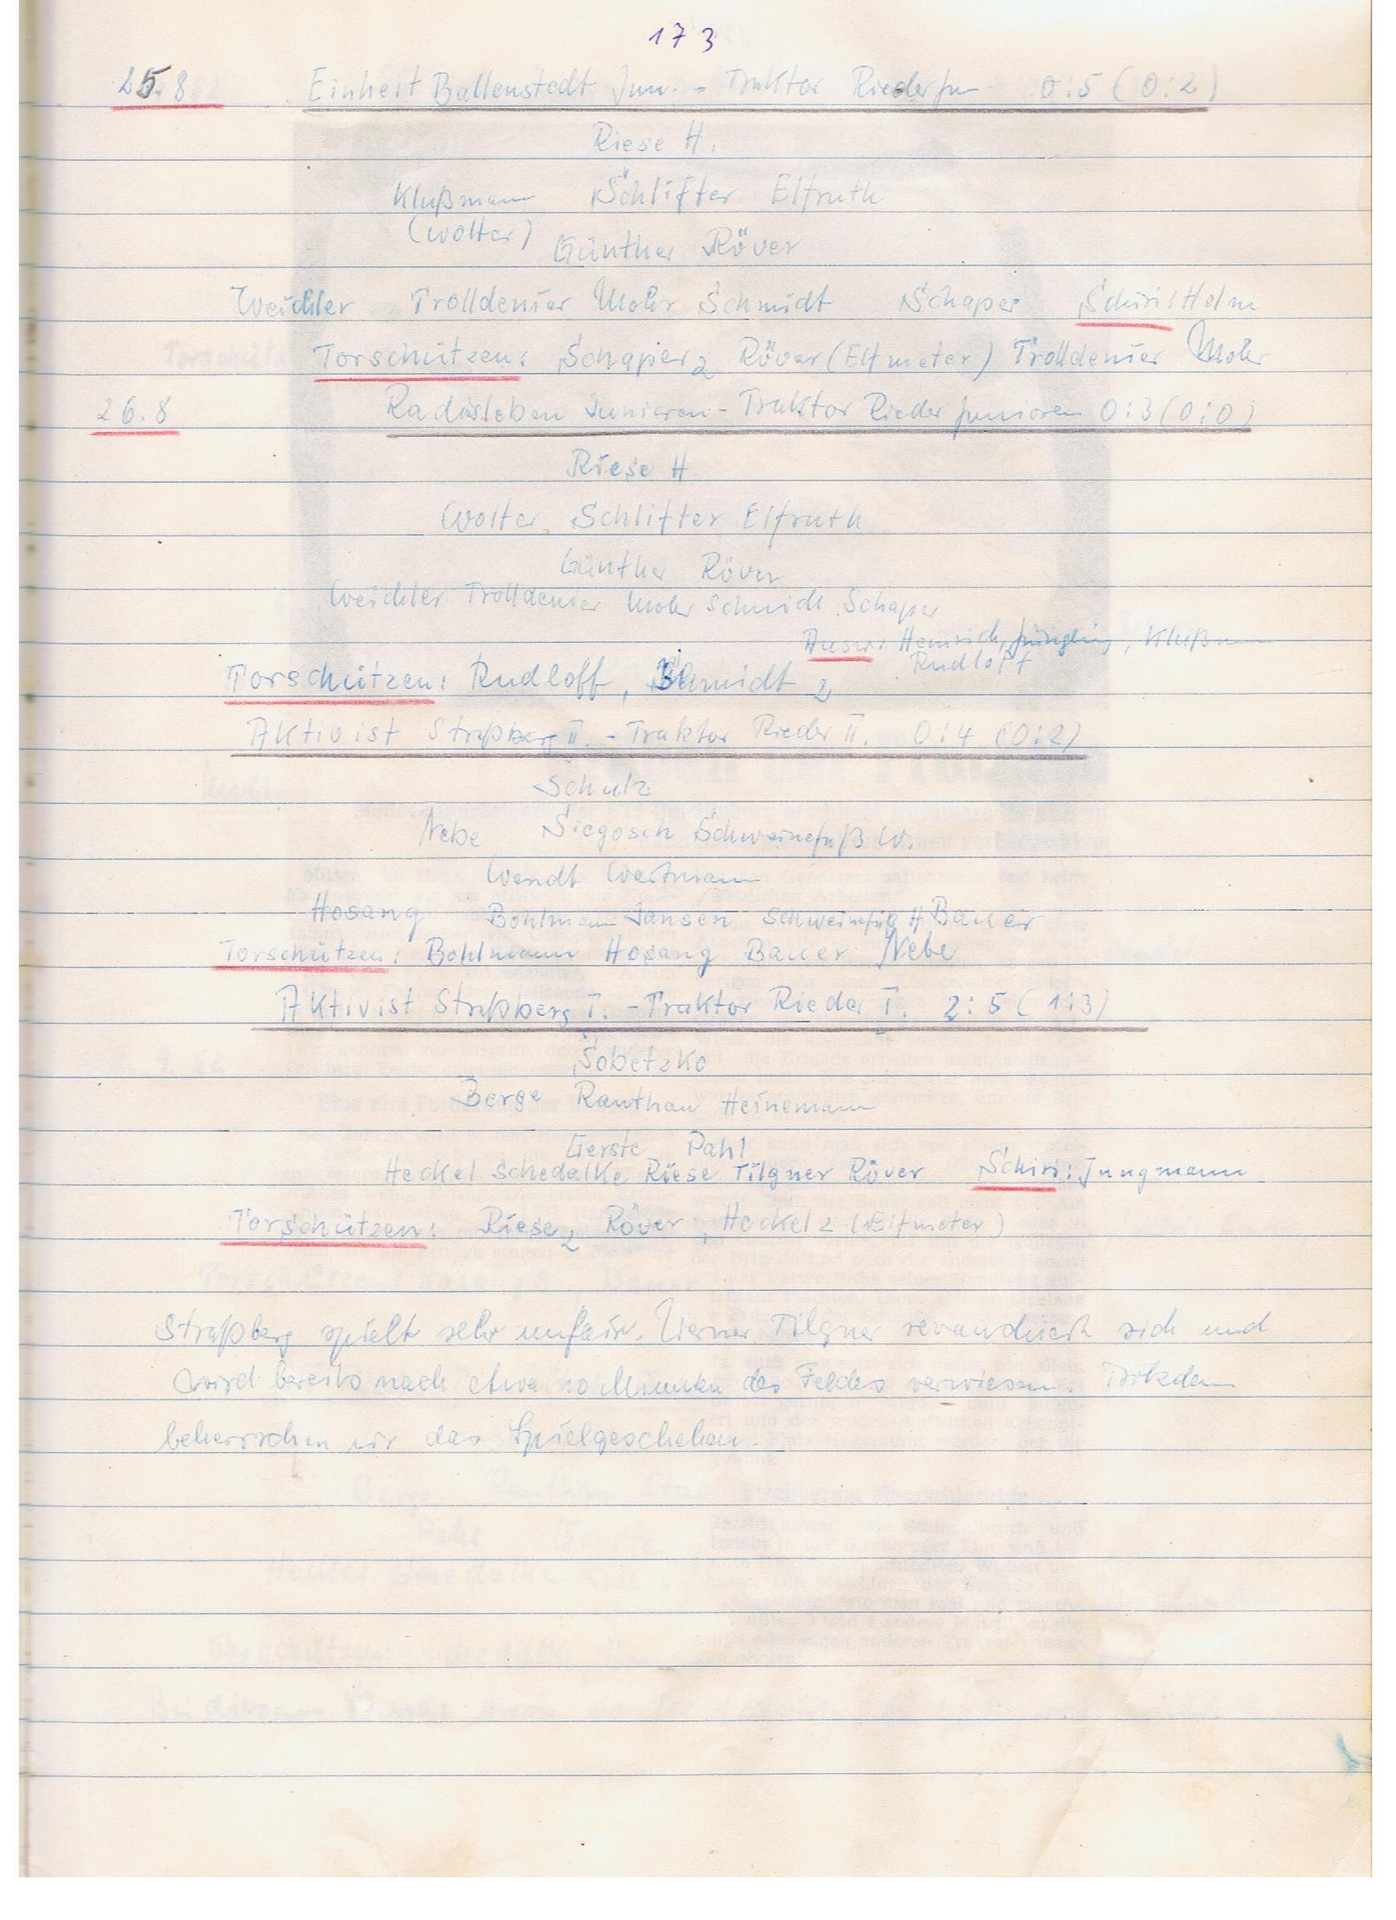 173
25.8 Einheit Ballenstedt Jun. - Traktor Rieder Jun 0:5 (0:2)
Riese H.
Klußmann Schlifter Elfruth
(Wolter) Günther Röver
Weichler Trolldenier Mohr Schmidt Schaper Schiri: Helm
Torschützen: Schaper 2 Röver (Elfmeter) Trolldenier Mohr
26.8 Radisleben Junioren - Traktor Rieder Junioren 0:3 (0:0)
Riese H
Wolter, Schlifter Elfruth
Günther Röver
Weichler Trolldenier Mohr Schmidt Schaper
Ausw: Heinrich, Jüngling, Klußmann
Rudloff
Torschützen: Rudloff, Schmidt 2
Aktivist Straßberg II. - Traktor Rieder II. 0:4 (0:2)
Schulz
Nebe Siegosch Schweinefuß W.
Wendt Weitmann
Hosang Bohlmann Jansen Schweinefuß H Bauer
Torschützen: Bohlmann Hosang Bauer Nebe
Aktivist Straßberg I. - Traktor Rieder I. 2:5 (1:3)
Sobetzko
Berge Ranthau Heinemann
Gerste Pahl
Heckel Schedalke Riese Tilgner Röver Schiri: Jungmann
Torschützen: Riese 2 Röver, Heckel 2 (Elfmeter)
Straßberg spielt sehr unfair. Werner Tilgner revanchiert sich und
wird bereits nach etwa 10 Minuten des Feldes verwiesen. Trotzdem
beherrschen wir das Spielgeschehen.